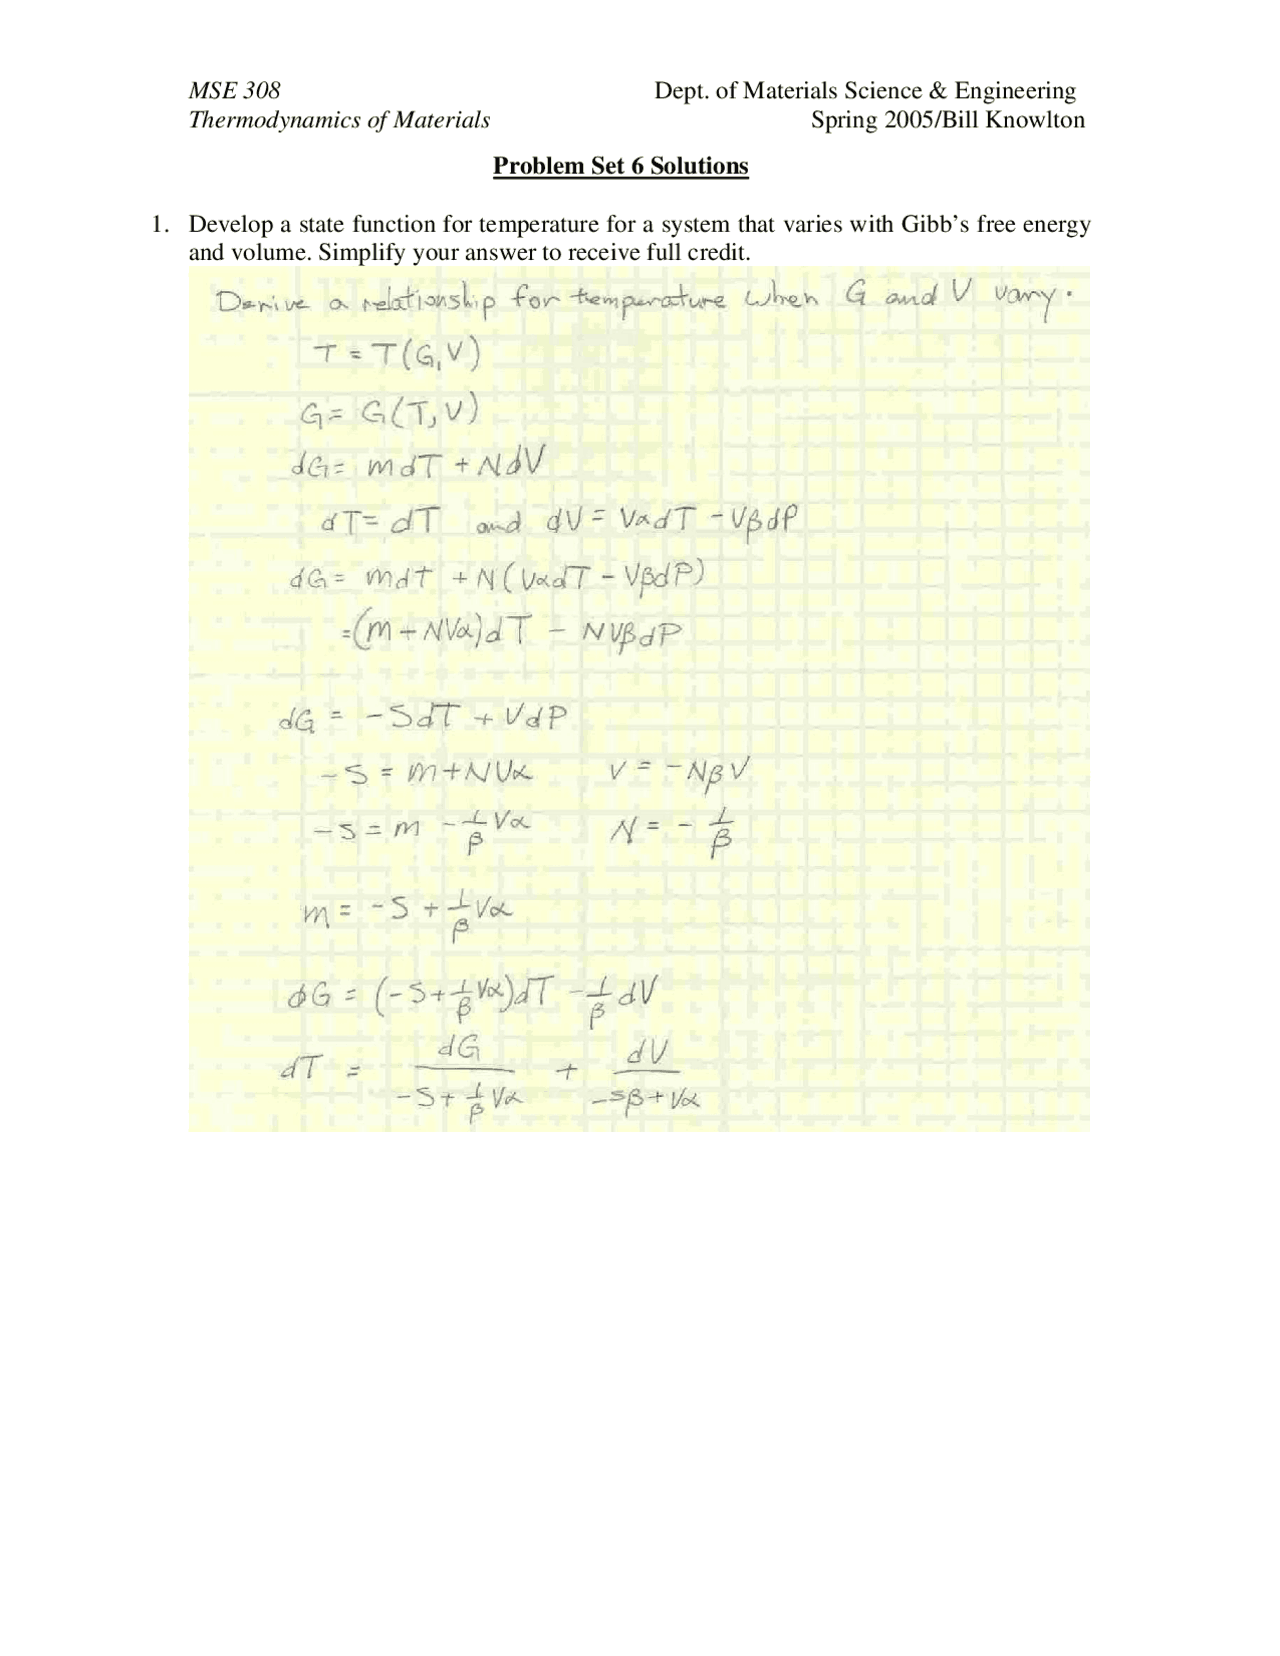 MSE 308 Dept. of Materials Science & Engineering
Thermodynamics of Materials Spring 2005/Bill Knowlton
Problem Set 6 Solutions
1. Develop a state function for temperature for a system that varies with Gibb's free energy
and volume. Simplify your answer to receive full credit.
Derive a relationship for temperature when G and V vary.
T = T(G,V)
G = G(T,V)
dG = mdT + NdV
dT = dT and dV = VαdT - VβdP
dG = mdt + N(VαdT - VβdP)
=(m + NVα)dT - NVβdP
dG = -SdT + VdP
-S = m+NVα V = -NβV
-S = m - 1/β Vα N = - 1/β
m = -S + 1/β Vα
dG = (-S + 1/β Vα)dT - 1/β dV
dT = dG/(-S + 1/β Vα) + dV/(-Sβ + Vα)